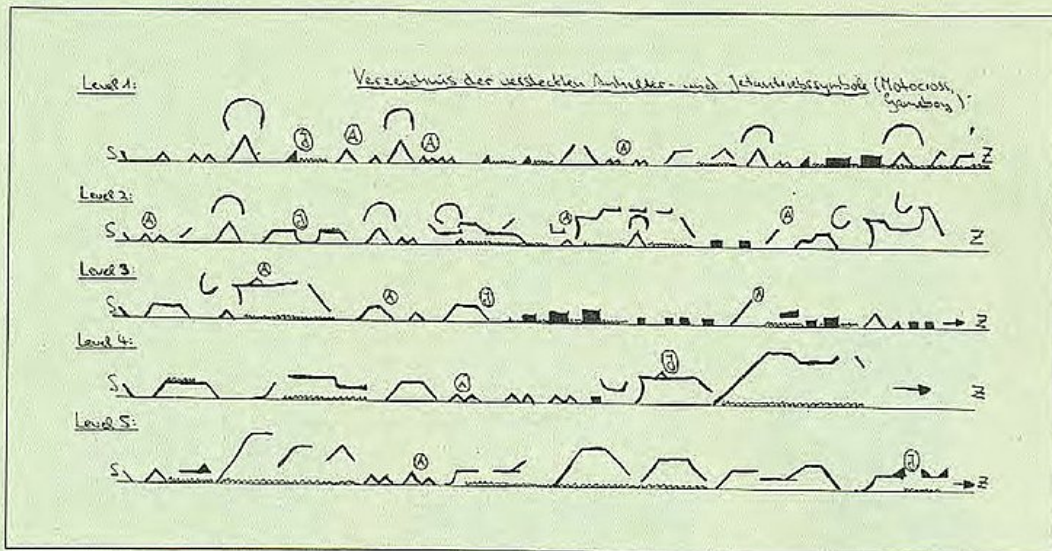 Verzeichnis der versteckten und Jetantriebssymbole (Motocross,
Gameboy):
Level 1:
S J A A A Z
Level 2:
S A J A A Z
Level 3:
S A A J A Z
Level 4:
S A J Z
Level 5:
S A J Z